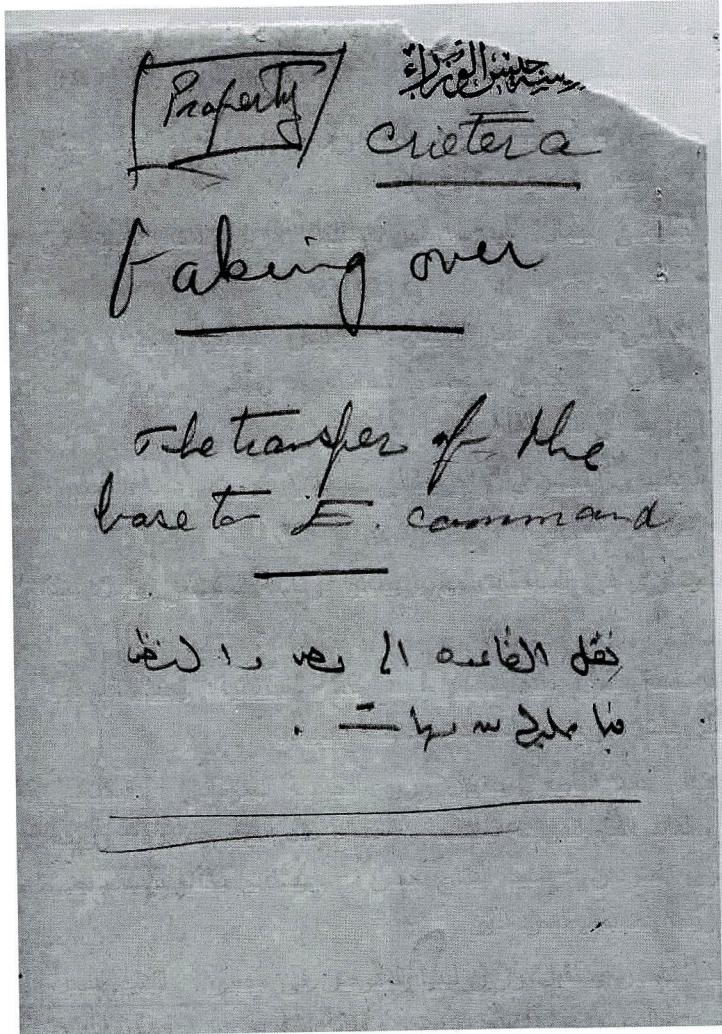 Property
رئيس مجلس الوزراء
Crietera
taking over
The transfer of the
base to E. command
نقل القاعدة الى